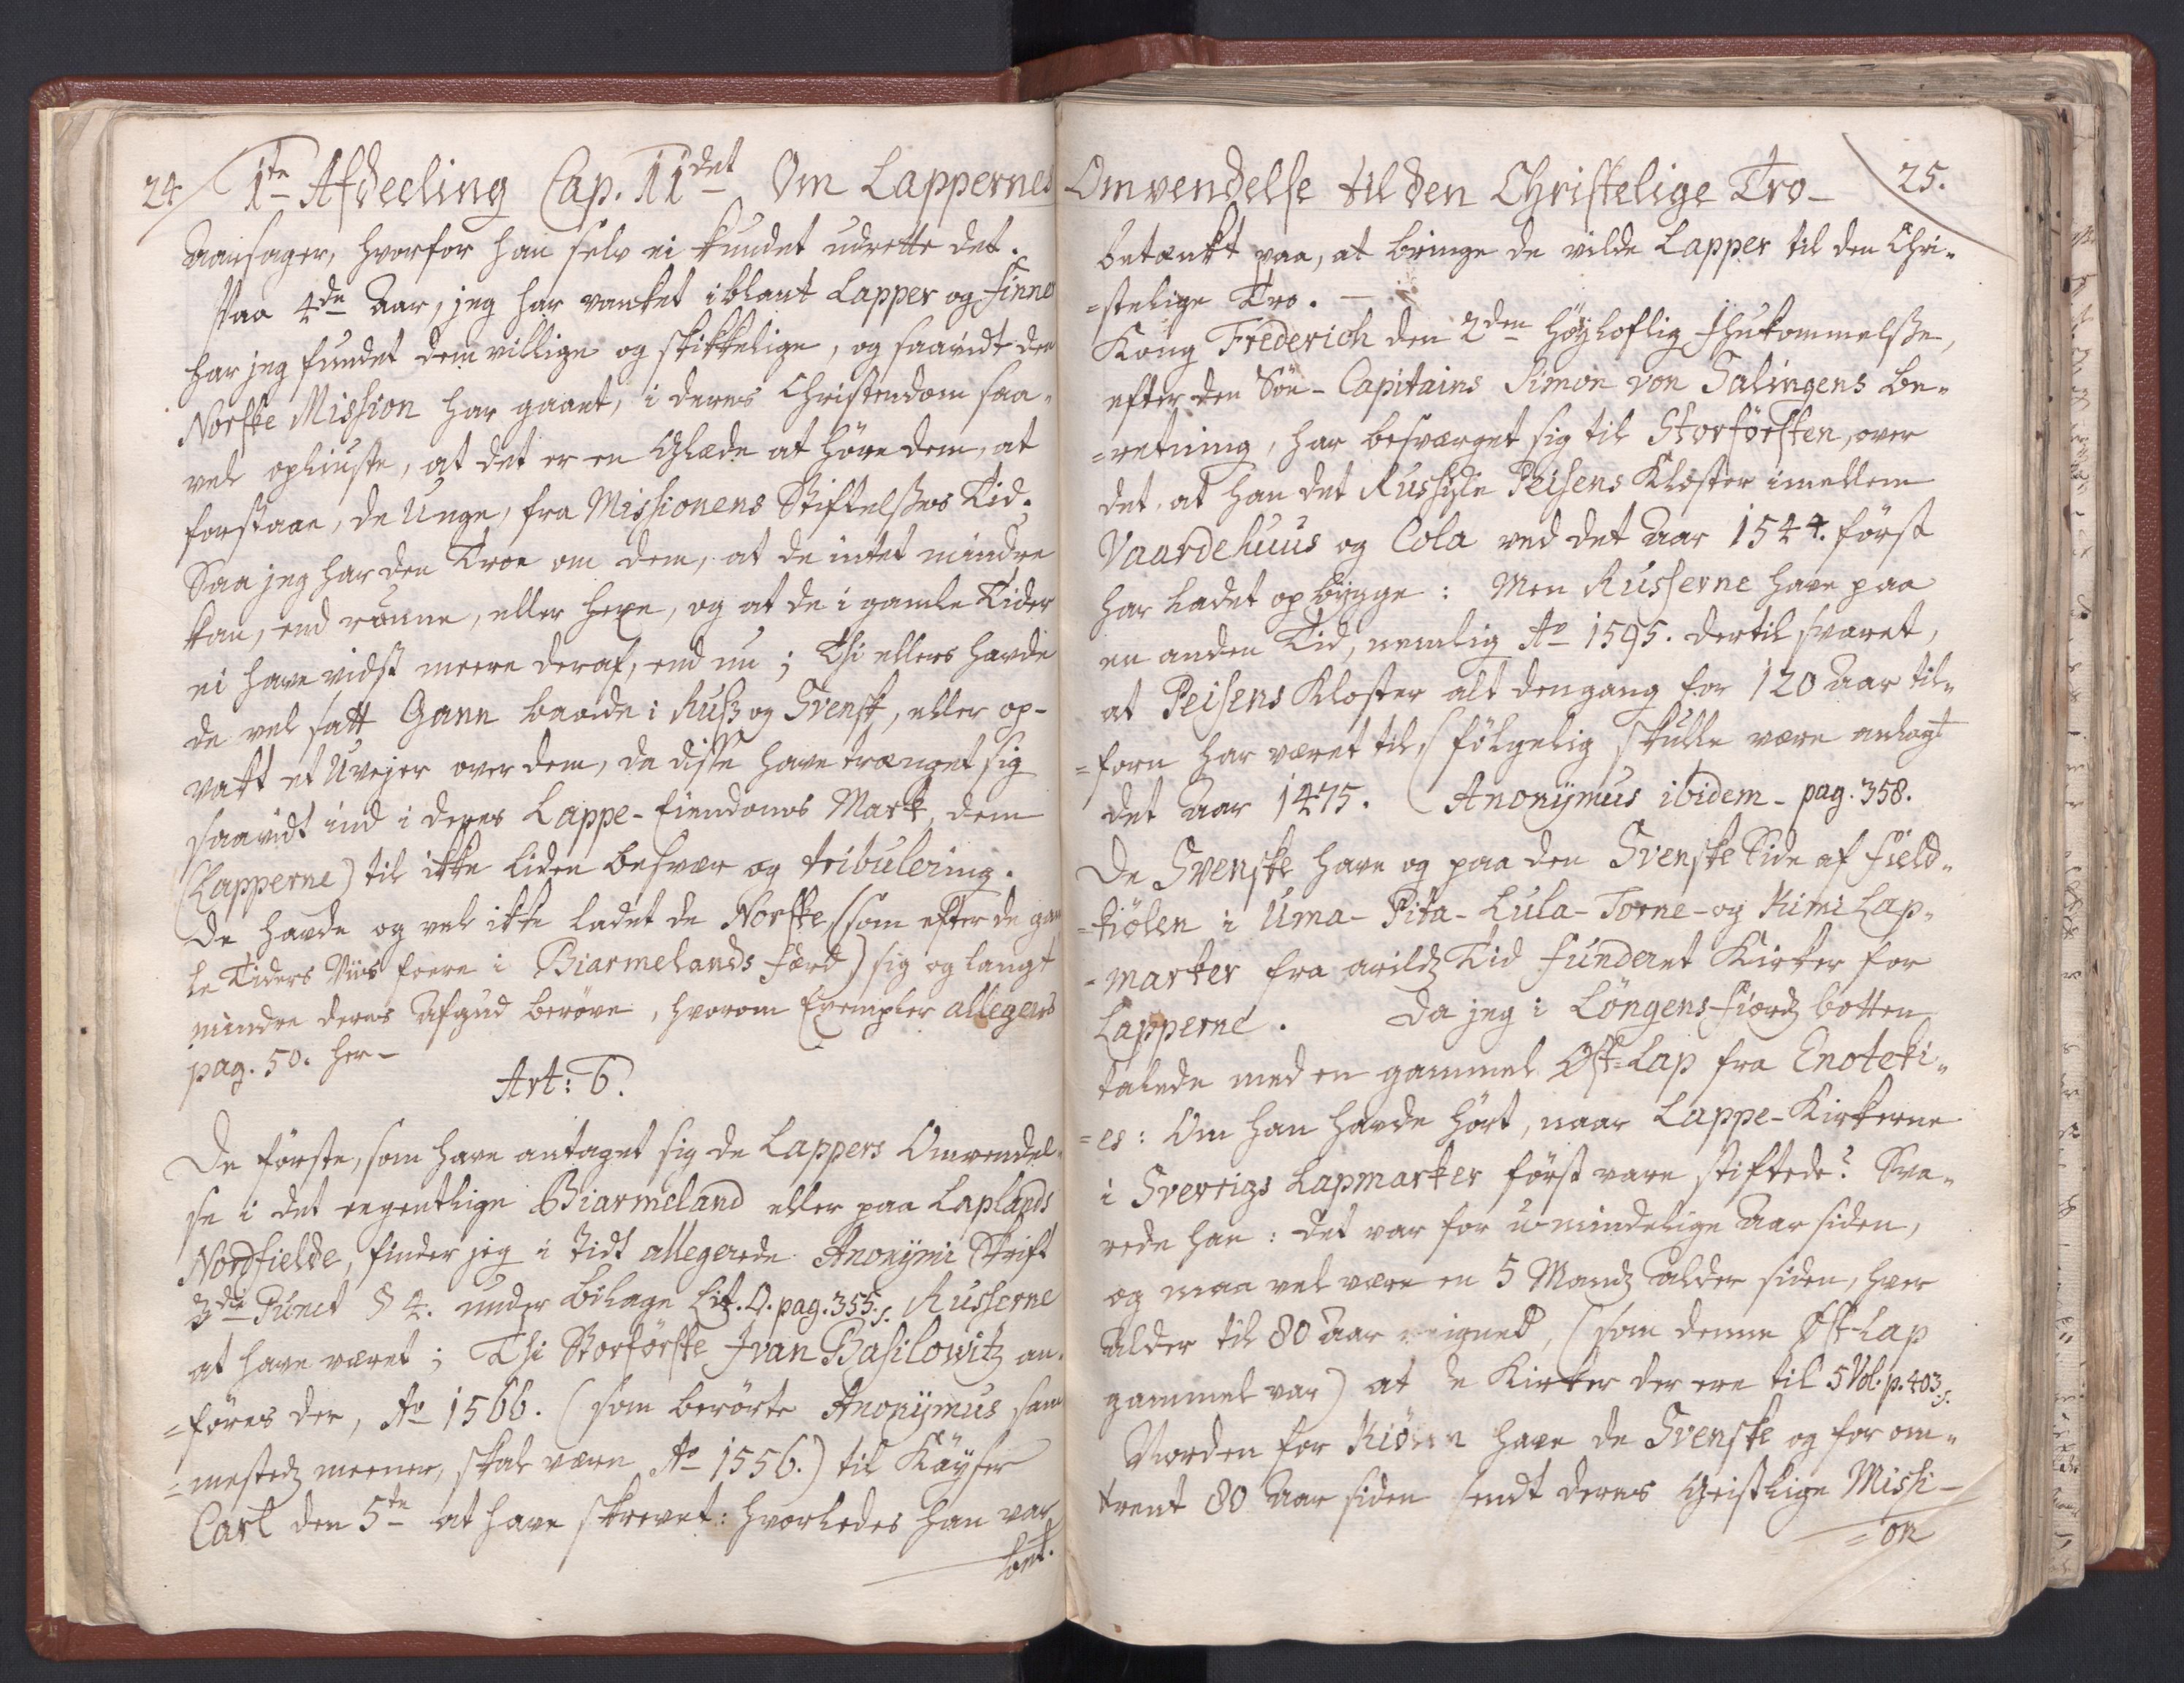 24
1te Afdeeling Cap. 11det Om Lappernes
Aarsager, hvorfor han selv ei kundet udrette det.
Paa 4de Aar, jeg har vanket iblant Lapper og Finner
har jeg fundet dem villige og skikkelige, og saavidt den
Norske Mission har gaaet, i deres Christendom saa-
vel opliuste, at det er en Glæde at höre dem, at
forstaae, de Unge, fra Missionens Stiftelsses Tid.
Saa jeg har den Troe om dem, at de intet mindre
kan, end runne, eller hexe, og at de i gamle Tider
ei have vidst meere deraf, end nu; Thi ellers havde
de vel satt Gann baade i Russ og Svensk, eller op-
vakt et Uvejer over dem, da disse have trænget sig
saavidt ind i deres Lappe-Eiendoms Mark, dem
(Lapperne) til ikke liden besvær og tribulering.
De havde og vel ikke ladet de Norske (som efter de gam
le Tiders Viis foere i Biarmelands Færd) sig og langt
mindre deres Afgud beröve, hvorom Exempler allegeres
pag. 50. her-
Art: 6.
De förste, som have antaget sig de Lappers Omvendel-
se i det egentlige Biarmeland eller paa Laplands
Nordfielde, finder jeg i tidt allegerede Anonÿmi Skrift
3die Punct § 4. under Bilage Lit. Q. pag. 355. s. Russerne
at have været; Thi Storförste Ivan Basilowitz an-
=föres der, Ao 1566. (som berörte Anonÿmus sam
=mestedz meener, skal være Ao 1556.) til Käÿser
Carl den 5te at have skrevet: hvorledes han var
bet.
Omvendelse til den Christelige Tro-
25.
betænkt paa, at bringe de vilde Lapper til den Chri-
=stelige Tro.-
Kong Frederich den 2den Höÿloflig Ihukommelsse,
efter den Söe-Capitains Simon von Salingens be-
=retning, har besværget sig til Storförsten, over
det, at han det Russiske Peisens Kloster imellem
Vaardehuus og Cola ved det Aar 1544. först
har ladet opbygge: Men Russerne have paa
en anden Tid, nemlig Ao 1595. dertil svaret,
at Peisens Kloster alt dengang for 120 Aar til-
=forn har været til, fölgelig skulle være anlagt
det Aar 1475. (Anonÿmus ibidem- pag. 358.
De Svenske have og paa den Svenske Side af Field-
=kiölen i Uma- Pita- Lula- Torne- og Kimi Lap-
-marker fra arildz Tid funderet Kirker for
Lapperne. Da jeg i Löngens-Fiordz botten
talede med en gammel Öst-Lap fra Enoteki-
=es: Om han havde hört, naar Lappe-Kirkerne
i Sverrigs Lapmarker först vare stiftede? Sva-
rede han: det var for umindelige Aar siden,
og maa vel være en 5 Mandz alder siden, hver
alder til 80 Aar reignet, (som denne Öst-Lap
gammel var) at de Kirker der ere til 5 Vol. p. 403. s.
Norden for Kiölen have de Svenske og for om-
trent 80 Aar siden sendt deres Geistlige Missi-
=on